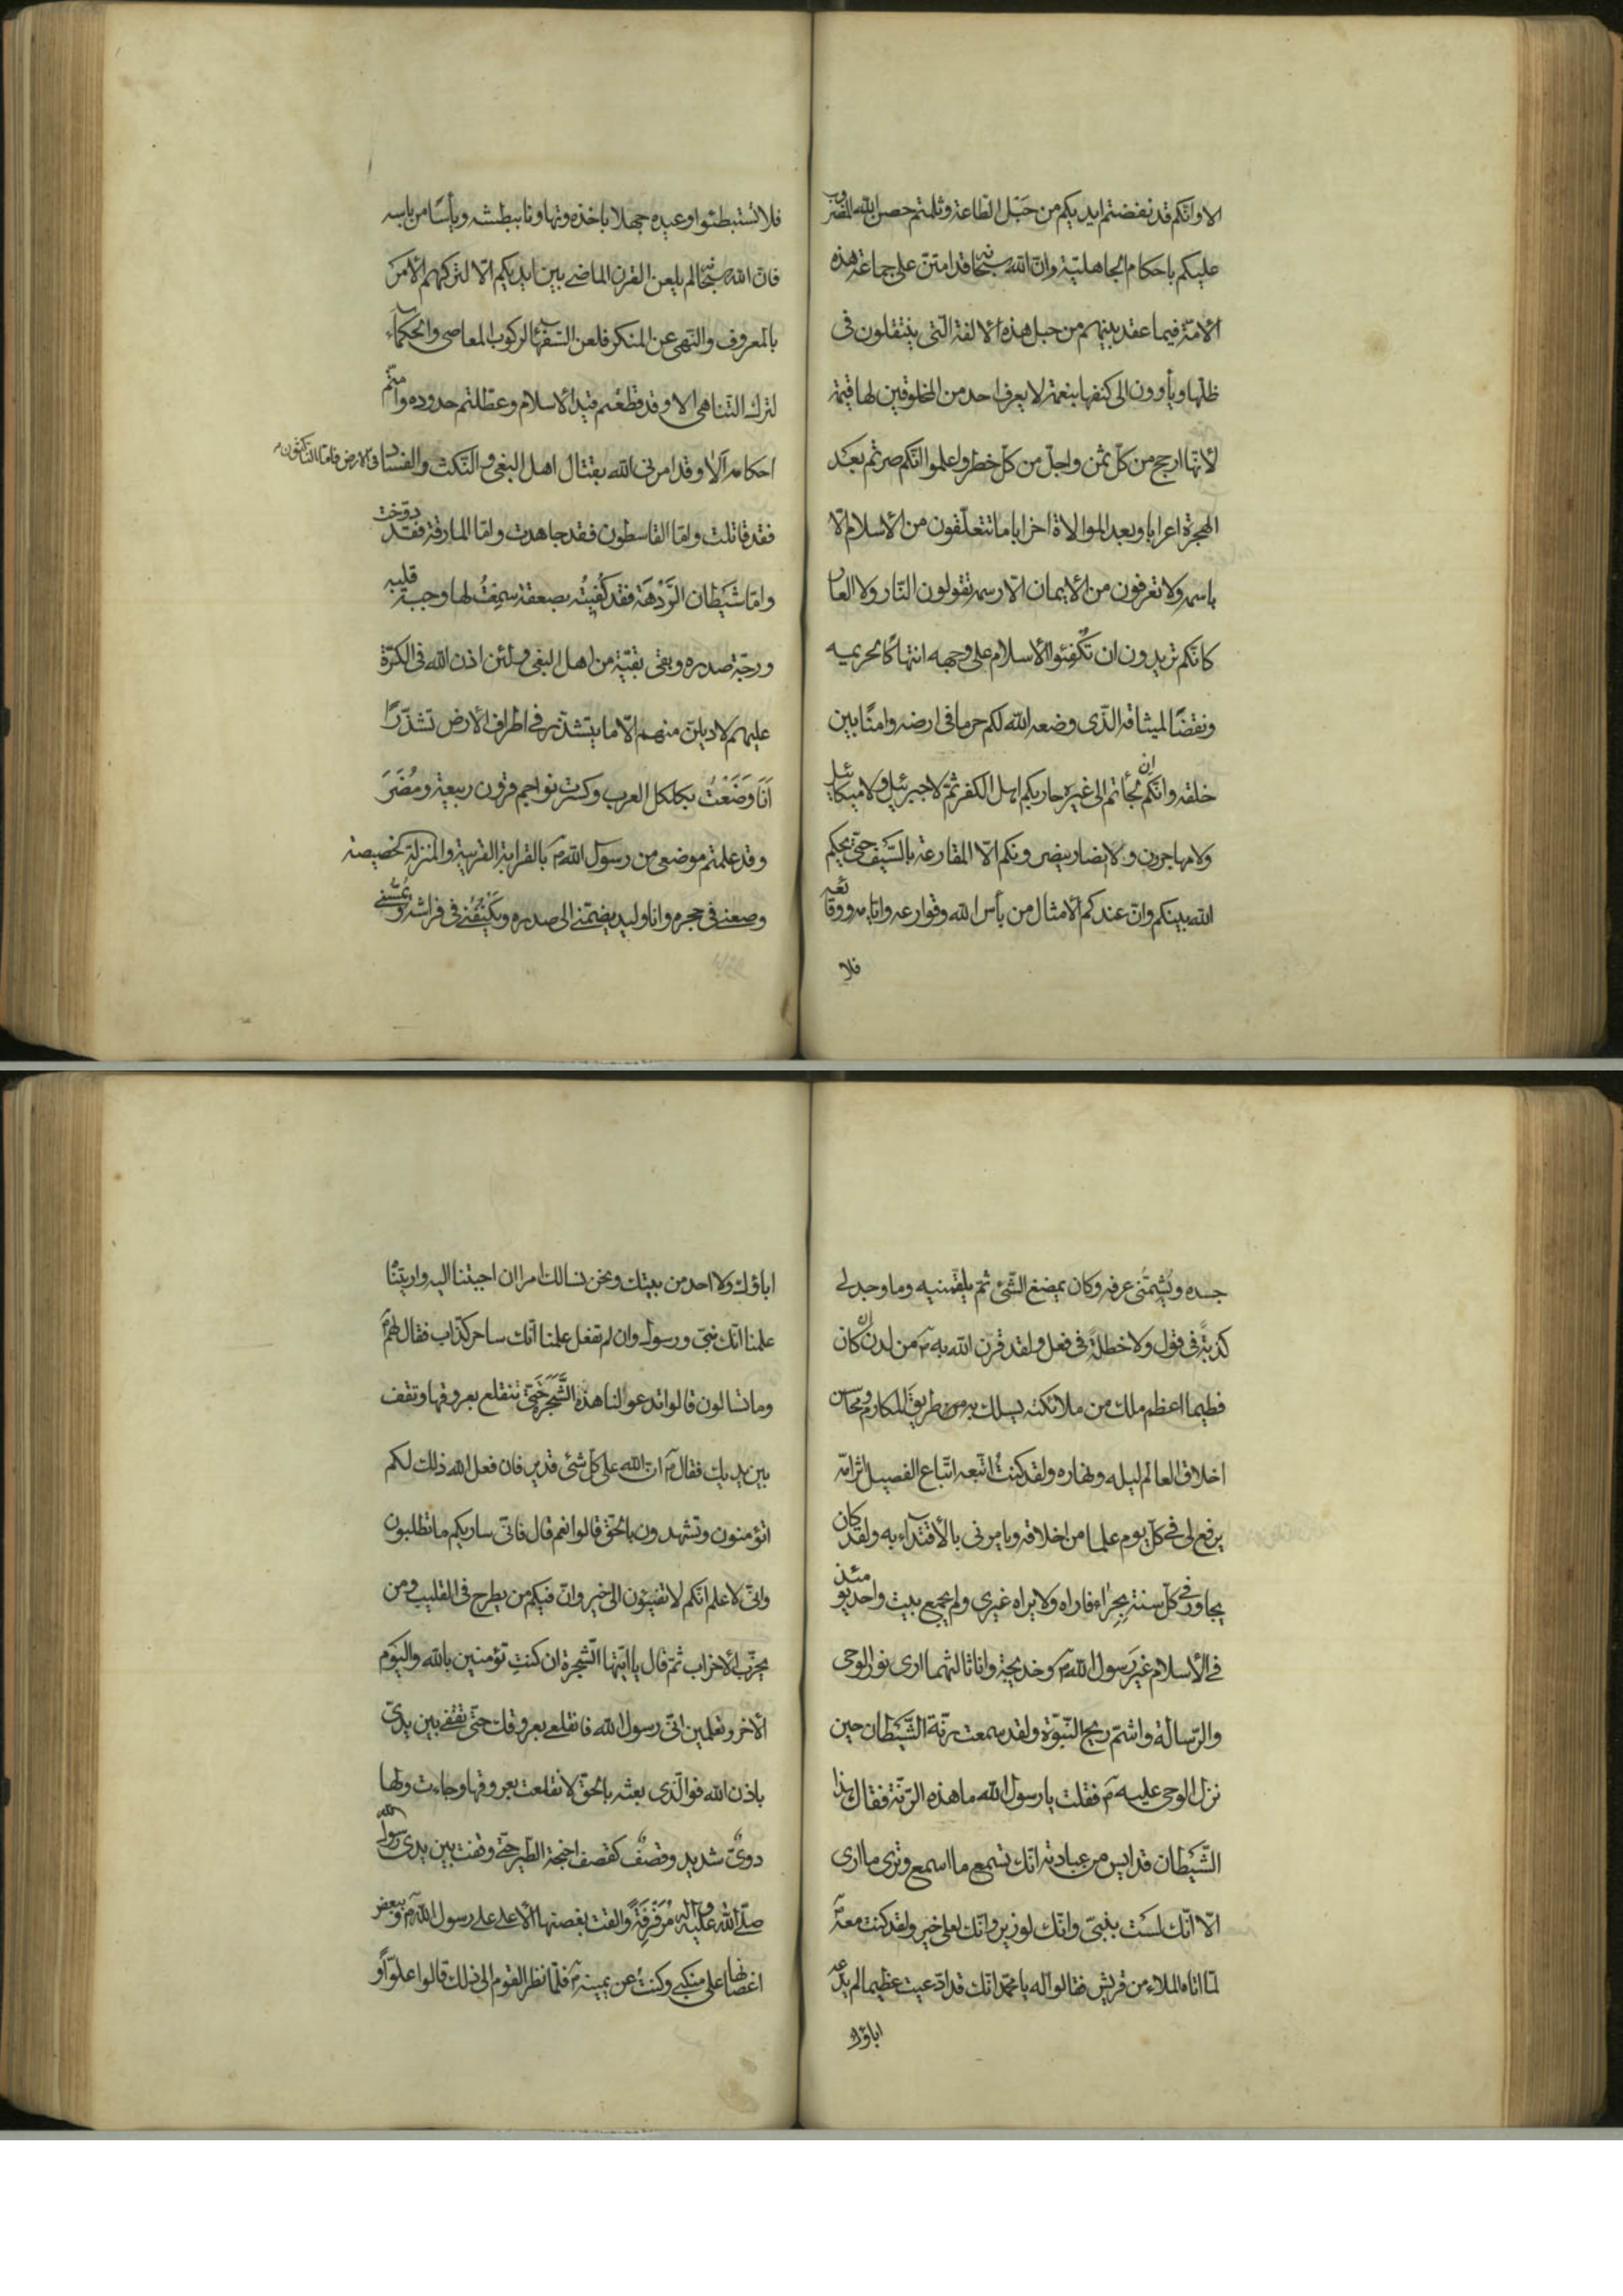 الا وانّكم قد نفضتم ايديكم من حَبْل الطّاعة وثلمتم حصن الله المضروب
عليكم باحكام الجاهليّة وانّ الله سبحانه قد امتنّ على جماعة هذه
الأمّة فيما عقد بينهم من حبل هذه الألفة الّتى ينتقلون فى
ظلّها ويأوون الى كنفها بنعمة لا يعرف احد من المخلوقين لها قيمة
لأنّها ارجح من كلّ ثمن واجلّ من كلّ خطر واعلموا انّكم صرتم بعد
الهجرة اعرابا وبعد الموالاة احزابا ما تتعلّقون من الأسلام الّا
باسمه ولا تعرفون من الأيمان الّا رسمه تقولون النّار ولا العار
كانّكم تريدون ان تكفئوا الأسلام على وجهه انتهاكا لحريمه
ونقضًا لميثاقه الّذى وضعه الله لكم حرما فى ارضه وامنًا بين
خلقه وانّكم ان لجأتم الى غيره حاربكم اهل الكفر ثمّ لا جبرئيل ولا ميكائيل
ولا مهاجرون ولا انصار ينصرونكم الّا المقارعة بالسّيف حتّى يحكم
الله بينكم وانّ عندكم الأمثال من بأس الله وقوارعه وايّامه ووقائعه
فلا
فلا تستبطئوا وعيده جهلا باخذه وتهاونا ببطشه ويأسًا من باسه
فانّ الله سبحانه لم يلعن القرن الماضى بين ايديكم الّا لتركهم الأمر
بالمعروف والنّهى عن المنكر فلعن السّفهاء لركوب المعاصى والحكماء
لترك التّناهى الا وقد قطعتم قيد الأسلام وعطّلتم حدوده وامتّم
احكامه ألا وقد امرنى الله بقتال اهل البغى والنّكث والفساد فى الارض فامّا النّاكثون
فقد قاتلت وامّا القاسطون فقد جاهدت وامّا المارقة فقد دوّخت
وامّا شَيطان الرَّدْهَة فقد كُفيتُه بصعقة سمِعْتُ لها وجبة قلبه
ورجّة صدره وبقى بقيّة من اهل البغى ولئن اذن الله فى الكرّة
عليهم لاديلنّ منهم الّا ما يتشذّر فى اطراف الأرض تشذّرًا
اَنَا وَضَعْتُ بكلكل العرب وكسرت نواجم قرون ربيعة ومُضَرَ
وقد علمتم موضعى من رسول الله ص بالقرابة القريبة والمنزلة الخصيصة
وضعنى فى حجره وانا وليد يضمّنى الى صدره ويَكْنُفُنى فى فراشه ويُمسُّنى
جسده ويُشِمّنى عرفه وكان يمضغ الشّئ ثمّ يلقمنيه وما وجد لى
كذبةً فى قول ولا خطلةً فى فعل ولقد قرن الله به ص من لدن ان كان
فطيما اعظم ملك من ملائكته يسلك به من طريق المكارم ومحاسن
اخلاق العالم ليله ونهاره ولقد كنتُ اتّبعه اتّباع الفصيل اثر امّه
يرفع لى فى كلّ يوم علما من اخلاقه ويامرنى بالأقتداء به ولقد كان
يجاور فى كلّ سنة بِحِرَاء فاراه ولا يراه غيرى ولم يجمع بيت واحد يومئذ
فى الأسلام غيرَ رسول الله ص وخديجة وانا ثالثهما ارى نور الوحى
والرّسالة واشمّ ريح النّبوّة ولقد سمعت رنّة الشّيطان حين
نزل الوحى عليه ص فقلت يا رسول الله ما هذه الرّنّة فقال هذا
الشّيطان قد ايس من عبادته انّك تسمع ما اسمع وترى ما ارى
الّا انّك لست بنبىّ وانّك لوزير وانّك لعلى خير ولقد كنت معه ص
لمّا اتاه الملاء من قريش فقالوا له يا محمّد انّك قد ادّعيت عظيما لم يدّعه
اباؤك
اباؤك ولا احد من بيتك ونحن نسالك امرا ان اجبتنا اليه واريتنا
علمنا انّك نبىّ ورسول وان لم تفعل علمنا انّك ساحر كذّاب فقال لهم ص
وما تسالون قالوا تدعو لنا هذه الشّجرة حتّى تنقلع بعروقها وتقف
بين يديك فقال ص انّ الله على كلّ شئ قدير فان فعل الله ذلك لكم
اتؤمنون وتشهدون بالحقّ قالوا نعم قال فانّى ساريكم ما تطلبون
وانّى لاعلم انّكم لا تفيئون الى خير وانّ فيكم من يطرح فى القليب ومن
يحزّب الأحزاب ثمّ قال يا ايّتها الشّجرة ان كنتِ تؤمنين بالله واليوم
الأخر وتعلمين انّى رسول الله فانقلعى بعروقك حتّى تقفى بين يدىّ
باذن الله فوالّذى بعثه بالحقّ لانقلعت بعروقها وجاءت ولها
دوىّ شديد وقصفٌ كقصف اجنحة الطّير حتّى وقفت بين يدى رسول الله
صلّى الله عليه وآله مُرَفْرِفَةً والقت بغصنها الأعلى على رسول الله ص وببعض
اغصانها على منكبى وكنت عن يمينه ص فلمّا نظر القوم الى ذلك قالوا علوّا و